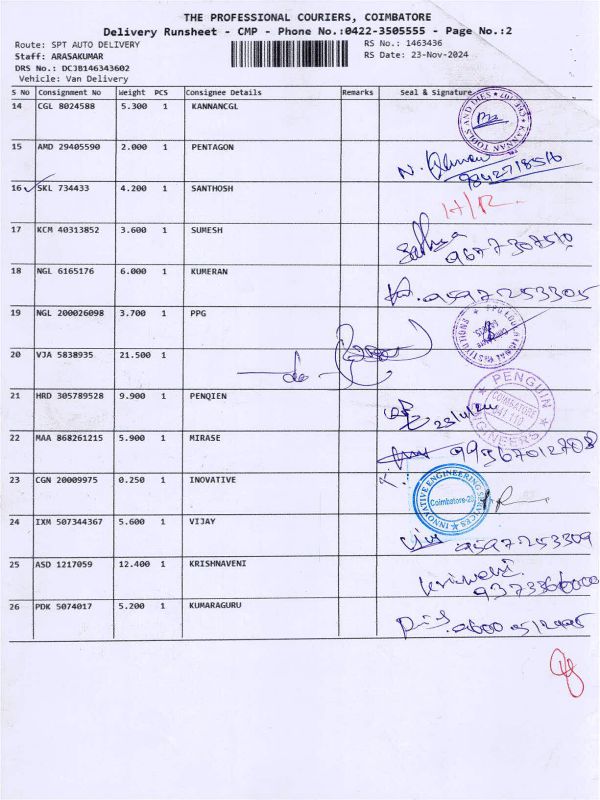 THE PROFESSIONAL COURIERS, COIMBATORE
Delivery Runsheet - CMP - Phone No.:0422-3505555 - Page No.:2
Route: SPT AUTO DELIVERY
RS No.: 1463436
Staff: ARASAKUMAR
RS Date: 23-Nov-2024
DRS No.: DC3B146343602
Vehicle: Van Delivery
S No Consignment No Weight PCS Consignee Details Remarks Seal & Signature
14 CGL 8024588 5.300 1 KANNANCGL
KANNAN TOOLS AND DIES
15 AMD 29405590 2.000 1 PENTAGON
9842718516
16 SKL 734433 4.200 1 SANTHOSH
H/R.
17 KCM 40313852 3.600 1 SUMESH
9677307510
18 NGL 6165176 6.000 1 KUMERAN
9597253305
19 NGL 200026098 3.700 1 PPG
20 VJA 5838935 21.500 1
-do-
21 HRD 305789528 9.900 1 PENQIEN
PENGUIN ENGINEERS
COIMBATORE
22 MAA 868261215 5.900 1 MIRASE
23 CGN 20009975 0.250 1 INOVATIVE
INNOVATIVE ENGINEERING SERVICES
24 IXM 507344367 5.600 1 VIJAY
9597253309
25 ASD 1217059 12.400 1 KRISHNAVENI
26 PDK 5074017 5.200 1 KUMARAGURU